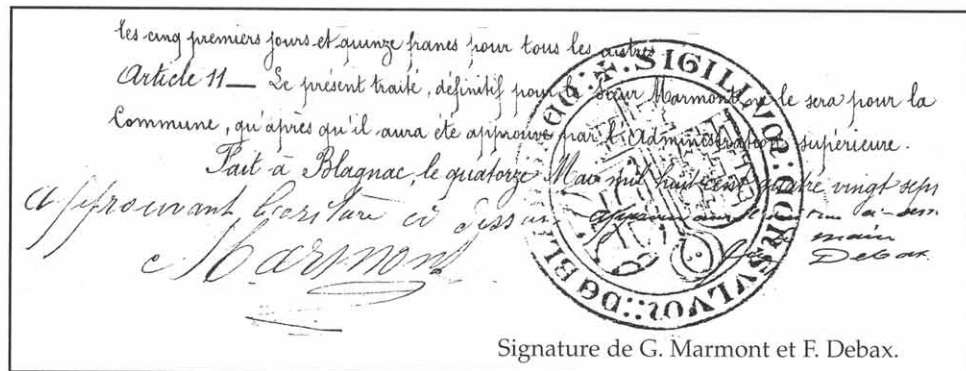 les cinq premiers jours et quinze francs pour tous les autres.
Article 11 — Le présent traité, définitif pour le Sieur Marmont, ne le sera pour la
Commune, qu'après qu'il aura été approuvé par l'Administration supérieure.
Fait à Blagnac, le quatorze Mai mil huit cent quatre vingt sept
Approuvant l'écriture ci dessus
main
Marmont
Debax
SIGILLVM: CONSVLVM: DE BL
Signature de G. Marmont et F. Debax.